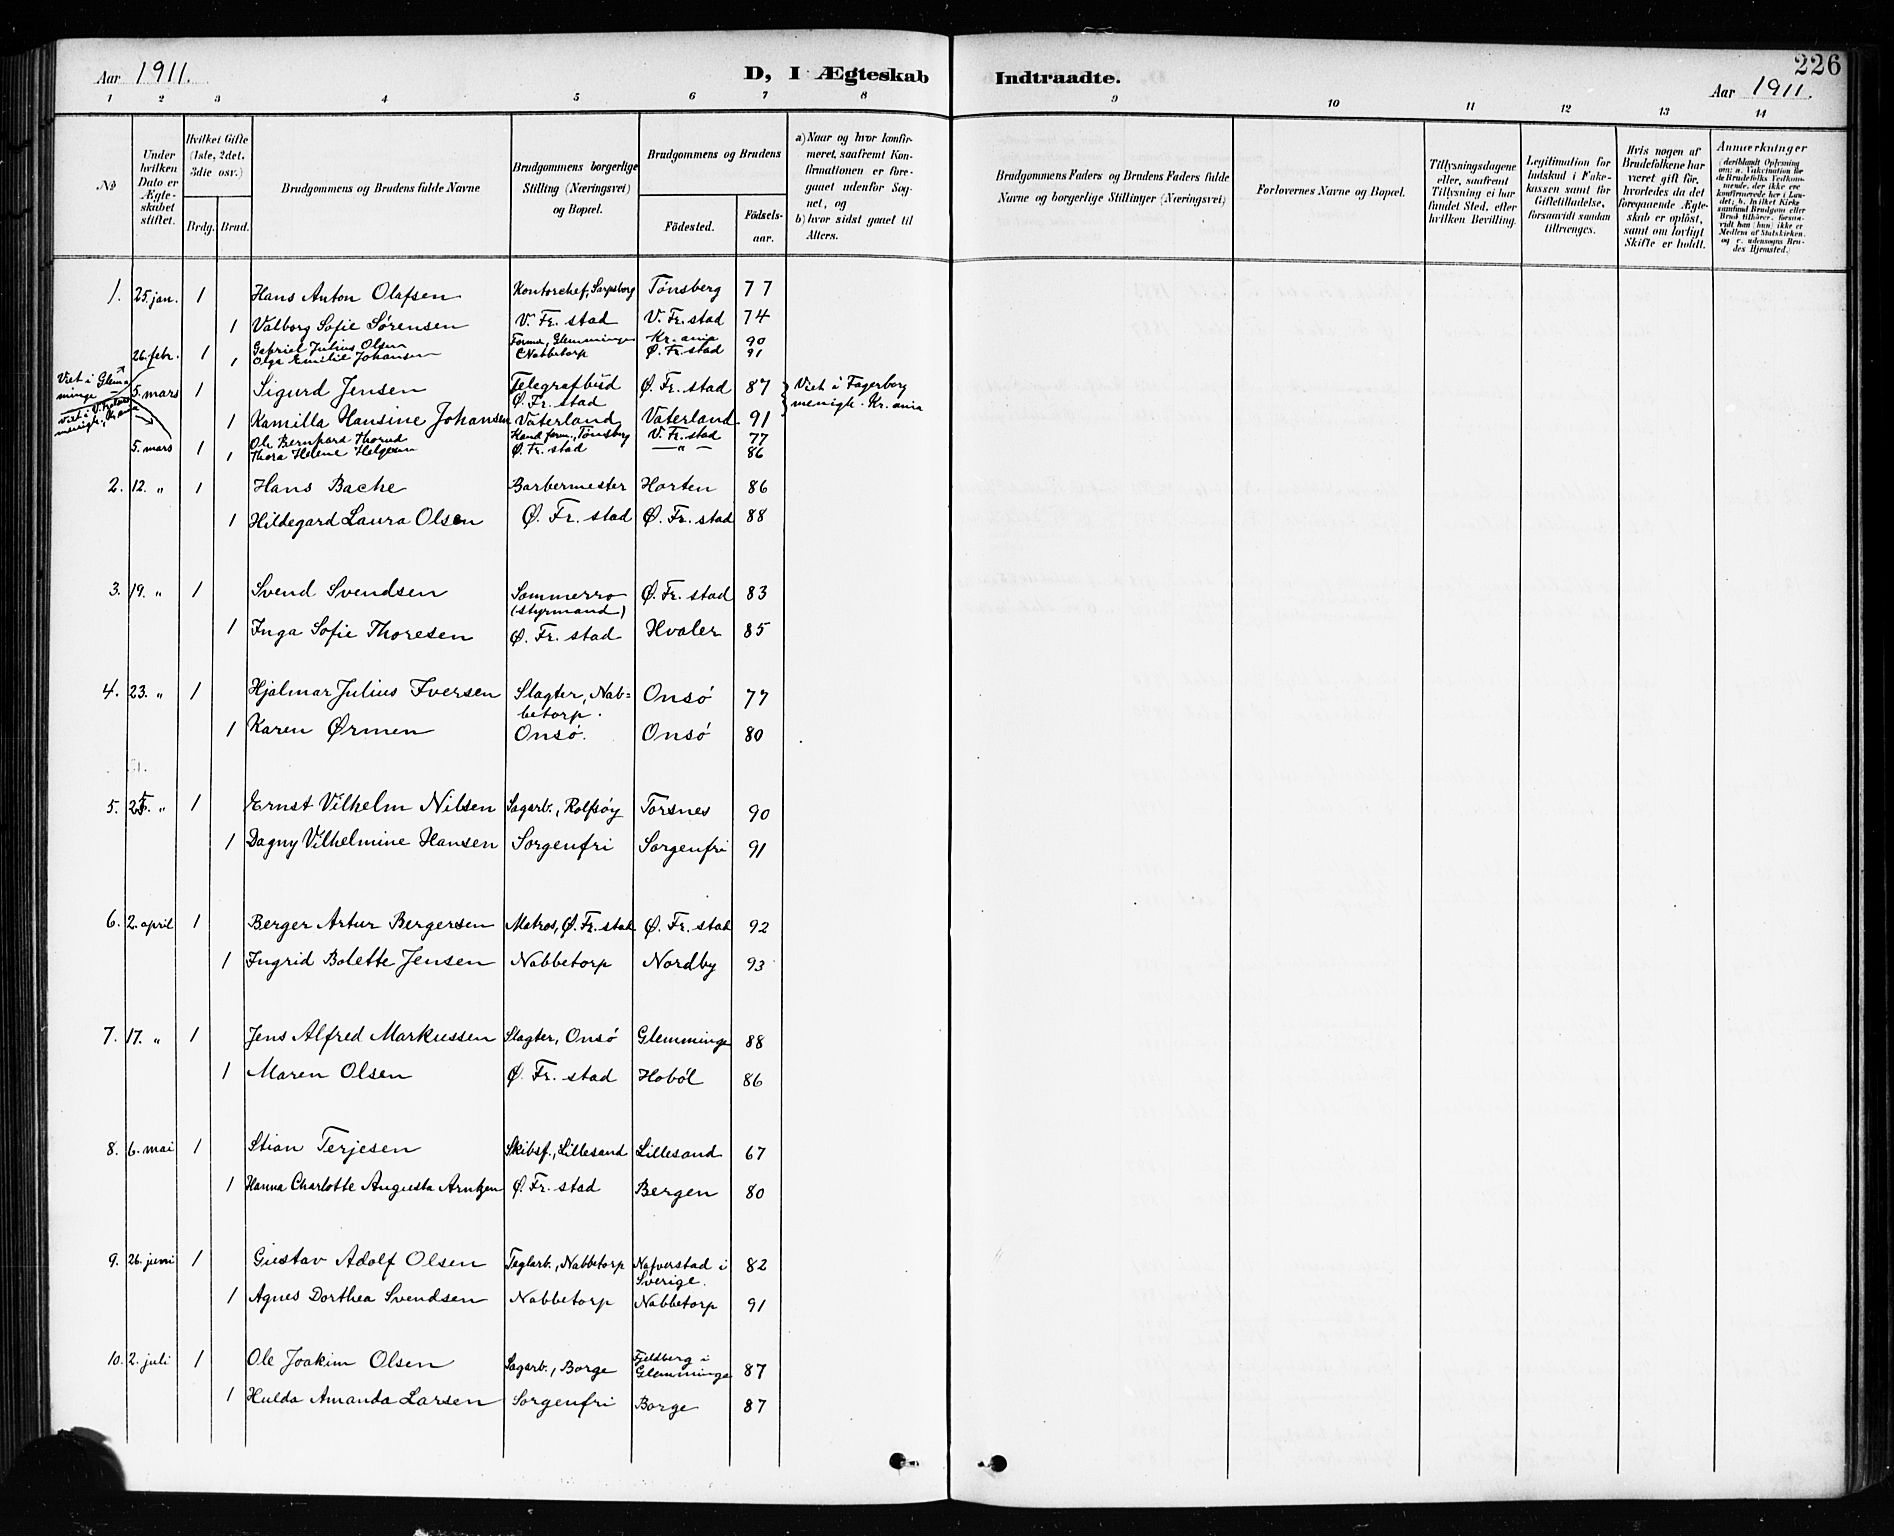 226
Aar 1911.
D, I Ægteskab Indtraadte.
Aar 1911.
1 2 3 4 5 6 7 8 9 10 11 12 13 14
No
Under hvilken Dato er Ægteskabet stiftet.
Hvilket Gifte (1ste, 2det, 3die osv.)
Brdg. Brud.
Brudgommens og Brudens fulde Navne
Brudgommens borgerlige Stilling (Næringsvei) og Bopæl.
Brudgommens og Brudens
Fødested.
Fødselsaar.
a) Naar og hvor konfirmeret, saafremt Konfirmationen er foregaaet udenfor Sognet, og
b) hvor sidst gaaet til Alters.
Brudgommens Faders og Brudens Faders fulde Navne og borgerlige Stillinger (Næringsvei)
Forlovernes Navne og Bopæl.
Tillysningsdagene eller, saafremt Tillysning ei har fundet Sted, efter hvilken Bevilling.
Legitimation for Indskud i Enkekassen samt for Giftetilladelse, forsaavidt saadan tiltrænges.
Hvis nogen af Brudefolkene har været gift før, hvorledes da det foregaaende Ægteskab er opløst, samt om lovligt Skifte er holdt.
Anmærkninger
1. 25. jan. 1 Hans Anton Olafsen Kontorchef, Sarpsborg Tönsberg 77
1 Valborg Sofie Sørensen V. Fr. stad V. Fr. stad 74
26. febr. 1 Gabriel Julius Olsen Former, Glemminge Kr.ania 90
1 Olga Emilie Johansen Nabbetorp Ø. Fr. stad 91
Viet i Glemminge
5. mars 1 Sigurd Jensen Telegrafbud Ø. Fr. stad Ø. Fr. stad 87 Viet i Fagerborg menigh. Kr. ania
1 Kamilla Hansine Johansen Vaterland Vaterland 91
5. mars 1 Ole Bernhard Thorud Tönsberg V. Fr. stad 77
1 Thora Helene Helgesen Ø. Fr. stad — " — 86
2. 12. " 1 Hans Bache Barbermester Horten 86
1 Hildegard Laura Olsen Ø. Fr. stad Ø. Fr. stad 88
3. 19. " 1 Svend Svendsen Sommerro (styrmand) Ø. Fr. stad 83
1 Inga Sofie Thoresen Ø. Fr. stad Hvaler 85
4. 23. " 1 Hjalmar Julius Iversen Slagter, Nabbetorp. Onsö 77
1 Karen Ørmen Onsö. Onsö 80
5. " 1 Ernst Vilhelm Nilsen Sagarb., Rolfsøy Torsnes 90
1 Dagny Vilhelmine Hansen Sorgenfri Sorgenfri 91
6. 2. april 1 Berger Artur Bergersen Matros, Ø. Fr. stad Ø. Fr. stad 92
1 Ingrid Bolette Jensen Nabbetorp Nordby 93
7. 17. " 1 Jens Alfred Markussen Slagter, Onsö Glemminge 88
1 Maren Olsen Ø. Fr. stad Hoböl 86
8. 6. mai 1 Stian Terjesen Skibsf., Lillesand Lillesand 67
1 Hanna Charlotte Augusta Arntzen Ø. Fr. stad Bergen 80
9. 26. juni 1 Gustav Adolf Olsen Teglarb., Nabbetorp Nafverstad i Sverige. 82
1 Agnes Dorthea Svendsen Nabbetorp Nabbetorp 91
10. 2. juli 1 Ole Joakim Olsen Sagarb., Borge Fjeldberg i Glemminge 87
1 Hulda Amanda Larsen Sorgenfri Borge 87